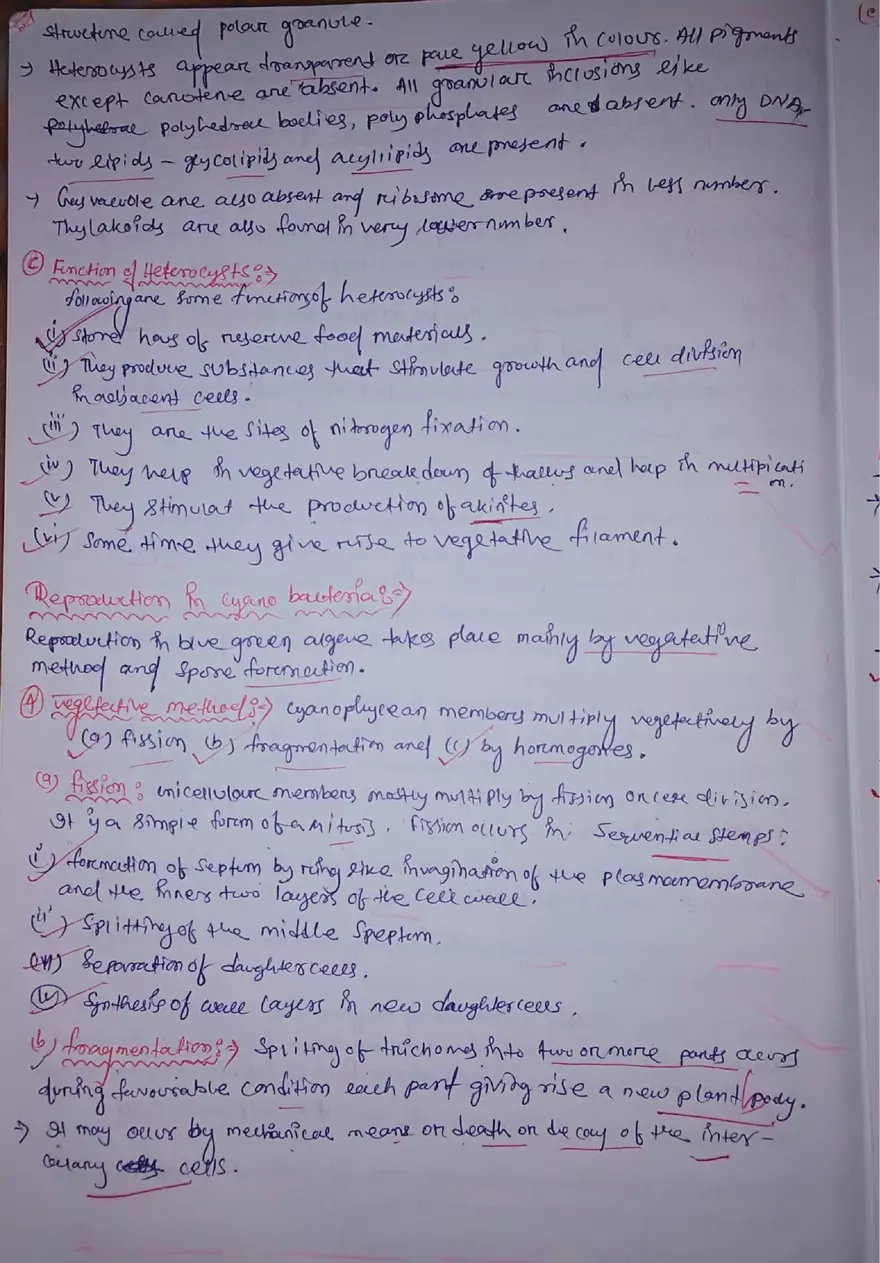 structure called polar granule.
→ Heterocysts appear transparent or pale yellow in colour. All pigments
except carotene are absent. All granular inclusions like
polyhedral bodies, polyphosphates are absent. only DNA,
two lipids – glycolipids and acyllipids are present.
→ Gas vacuole are also absent and ribosome are present in less number.
Thylakoids are also found in very lower number.
(C) Function of Heterocysts:→
following are some functions of heterocysts:
(i) store hous of reserve food materials.
(ii) They produce substances that stimulate growth and cell division
in adjacent cells.
(iii) They are the sites of nitrogen fixation.
(iv) They help in vegetative breakdown of thallus and help in multiplicati
on.
(v) They stimulat the production of akinites.
(vi) Some time they give rise to vegetative filament.
Reproduction in cyano bacteria:→
Reproduction in blue green algae takes place mainly by vegatative
method and spore formation.
(A) vegetective method:→ cyanophycean members multiply vegetectively by
(a) fission (b) fragmentation and (c) by hormogones.
(a) fission: unicellular members mostly multiply by fission or cell division.
It is a simple form of amitosis. Fission occurs in sequential stemps:
(i) formation of septum by ring like invagination of the plasmamembrane
and the inner two layers of the cell wall.
(ii) Splitting of the middle speptum.
(iii) Separation of daughter cells.
(iv) Synthesis of wall layers in new daughter cells.
(b) fragmentation:→ Spliting of trichomes into two or more parts occurs
during favourable condition each part giving rise a new plant body.
→ It may occur by mechanical means or death or decay of the inter-
calary cells.